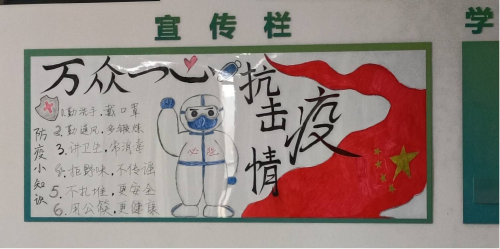 宣传栏
学
万众一心
抗击疫情
防疫小知识
1.勤洗手,戴口罩
2.勤通风,多锻炼
3.讲卫生,常消毒
4.拒野味,不传谣
5.不扎堆,更安全
6.用公筷,更健康